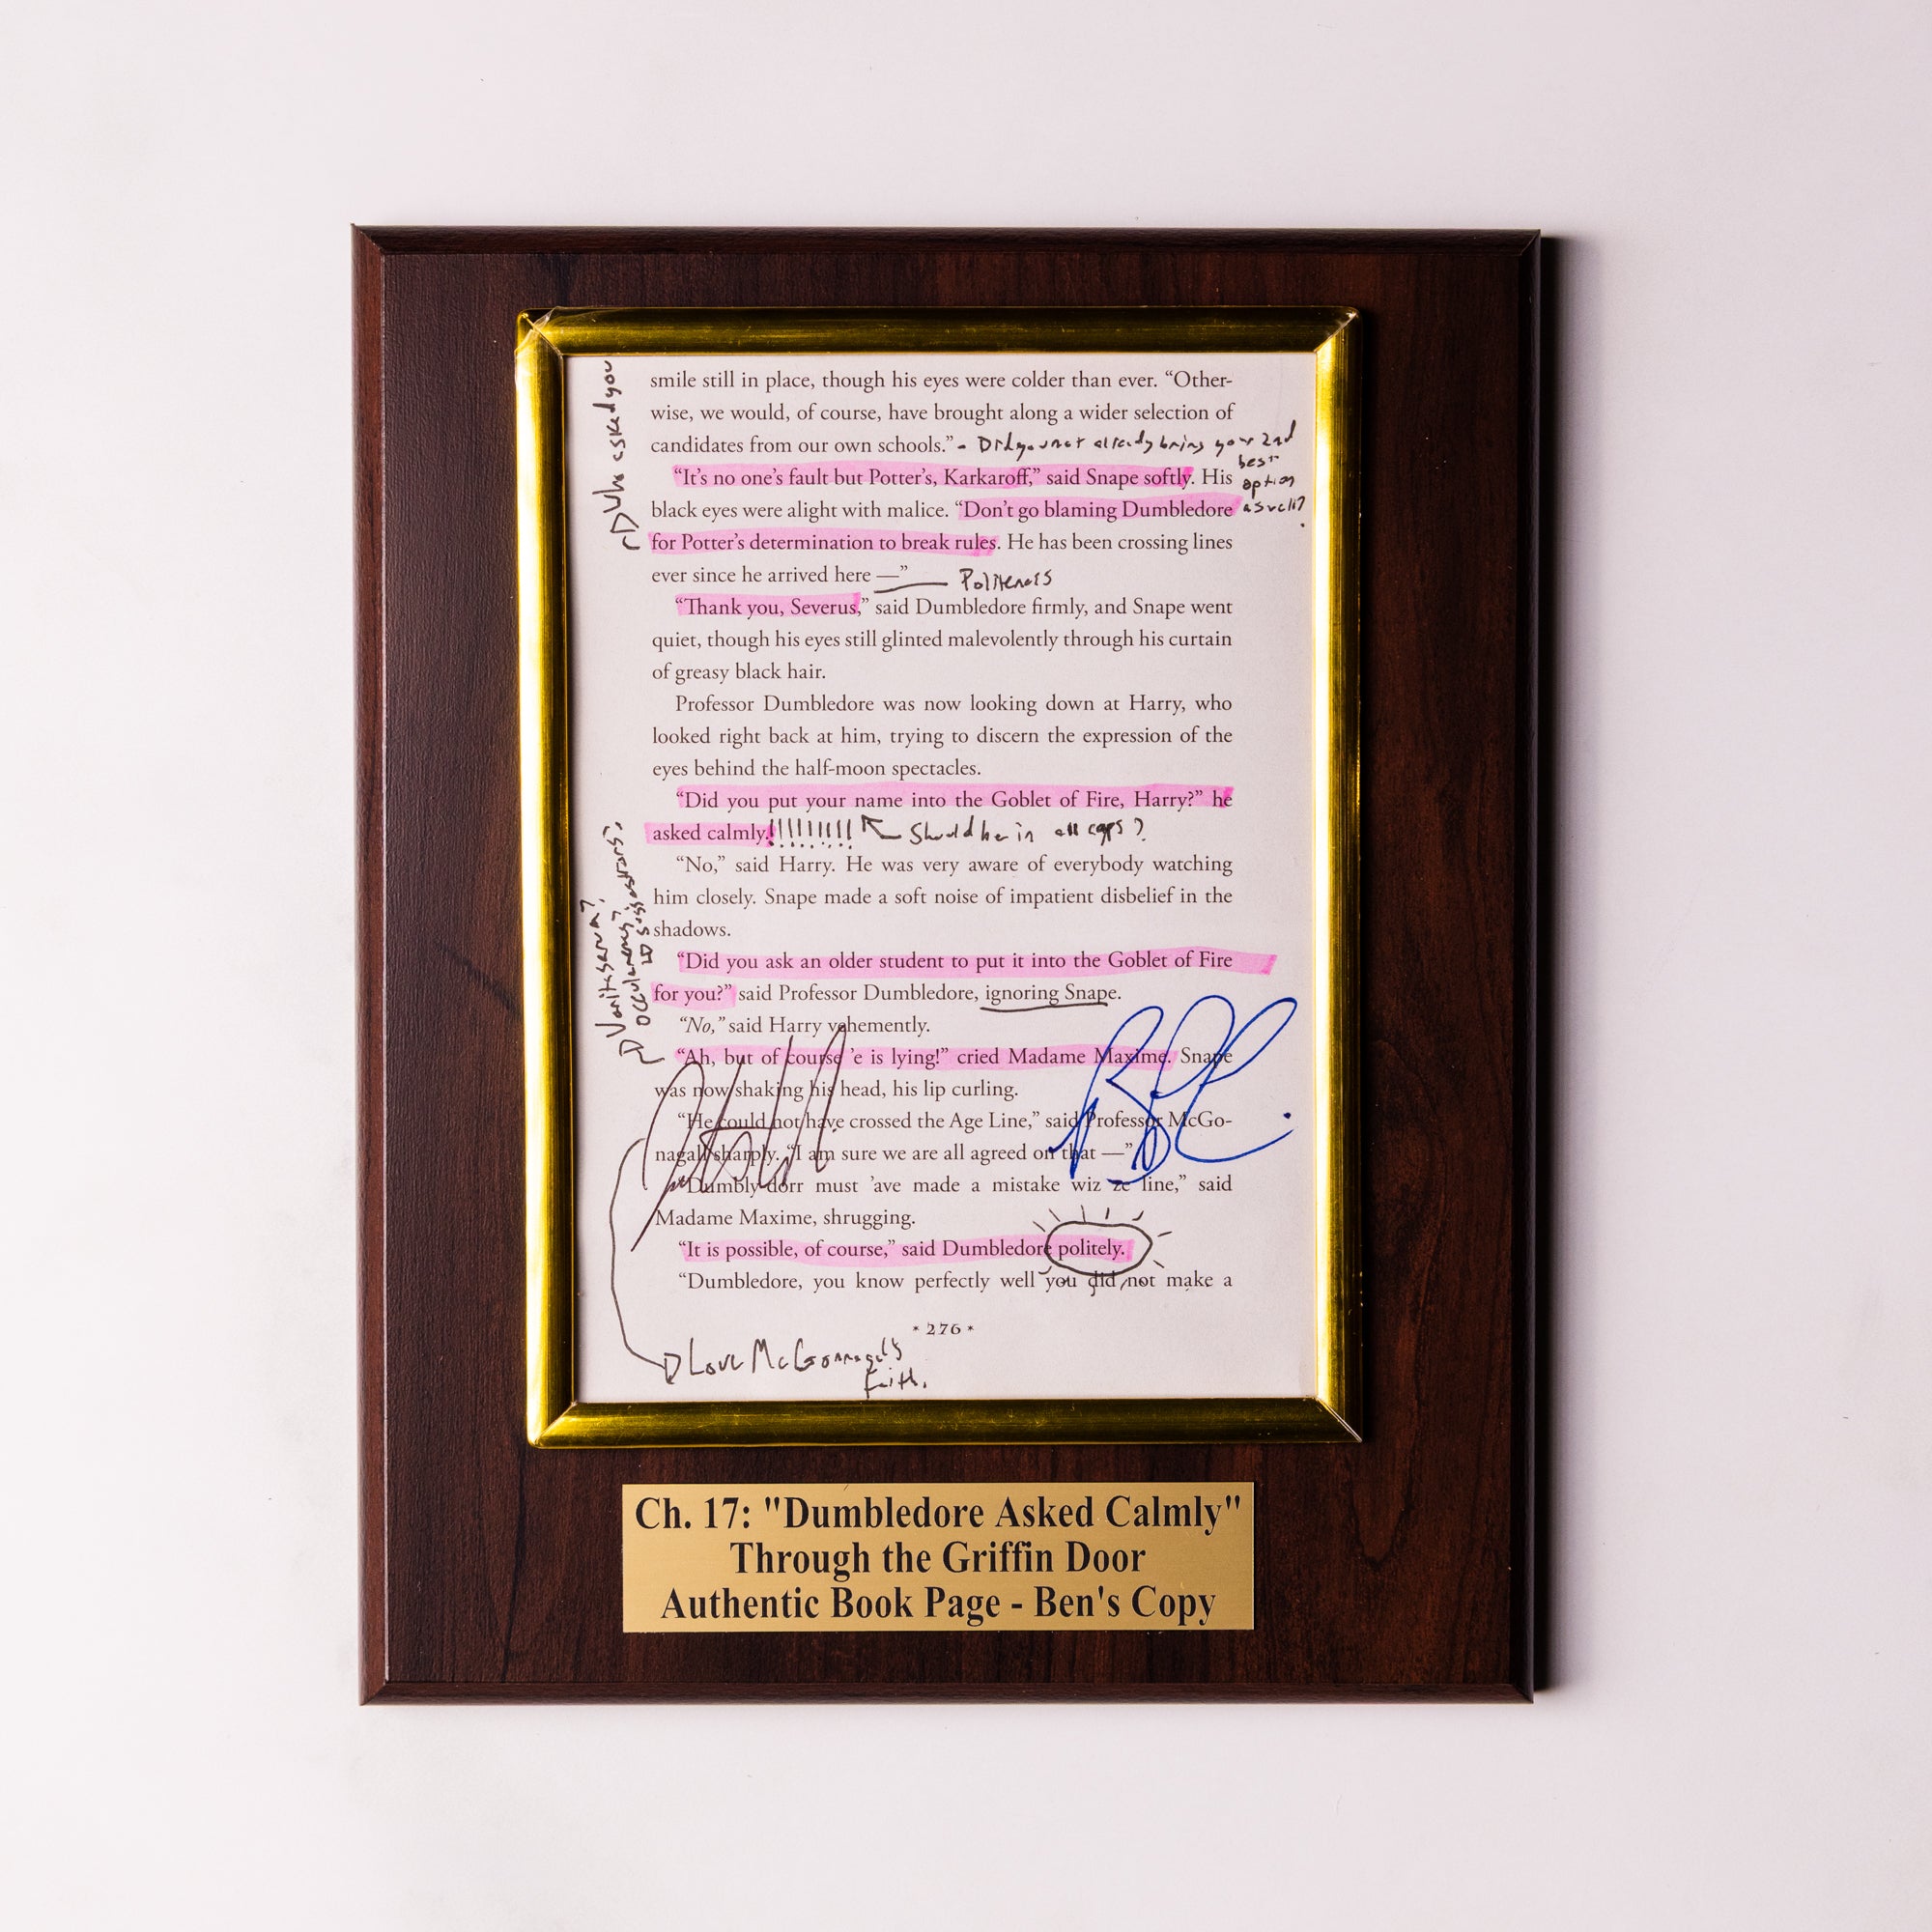 Who asked you
smile still in place, though his eyes were colder than ever. “Other-
wise, we would, of course, have brought along a wider selection of
candidates from our own schools.” - Did you not already bring your 2nd
best
option
as well?
“It’s no one’s fault but Potter’s, Karkaroff,” said Snape softly. His
black eyes were alight with malice. “Don’t go blaming Dumbledore
for Potter’s determination to break rules. He has been crossing lines
ever since he arrived here —” Politeness
“Thank you, Severus,” said Dumbledore firmly, and Snape went
quiet, though his eyes still glinted malevolently through his curtain
of greasy black hair.
Professor Dumbledore was now looking down at Harry, who
looked right back at him, trying to discern the expression of the
eyes behind the half-moon spectacles.
“Did you put your name into the Goblet of Fire, Harry?” he
asked calmly.!!!!!!!!! Should be in all caps?
“No,” said Harry. He was very aware of everybody watching
him closely. Snape made a soft noise of impatient disbelief in the
shadows.
“Did you ask an older student to put it into the Goblet of Fire
for you?” said Professor Dumbledore, ignoring Snape.
“No,” said Harry vehemently.
“Ah, but of course ’e is lying!” cried Madame Maxime. Snape
was now shaking his head, his lip curling.
“He could not have crossed the Age Line,” said Professor McGo-
nagall sharply. “I am sure we are all agreed on that —”
“Dumbly-dorr must ’ave made a mistake wiz ze line,” said
Madame Maxime, shrugging.
“It is possible, of course,” said Dumbledore politely.
“Dumbledore, you know perfectly well you did not make a
* 276 *
Love McGonnagal's
Faith.
Ch. 17: "Dumbledore Asked Calmly"
Through the Griffin Door
Authentic Book Page - Ben's Copy